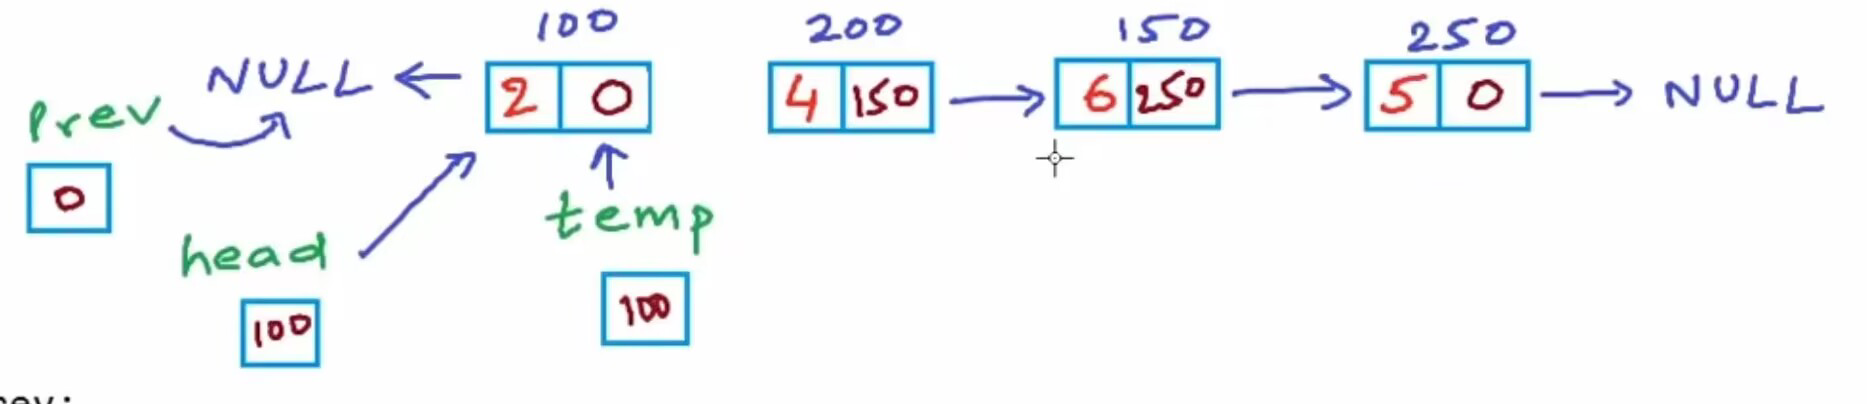 100 200 150 250
NULL 2 0 4 150 6 250 5 0 NULL
Prev
0
temp
head
100
100